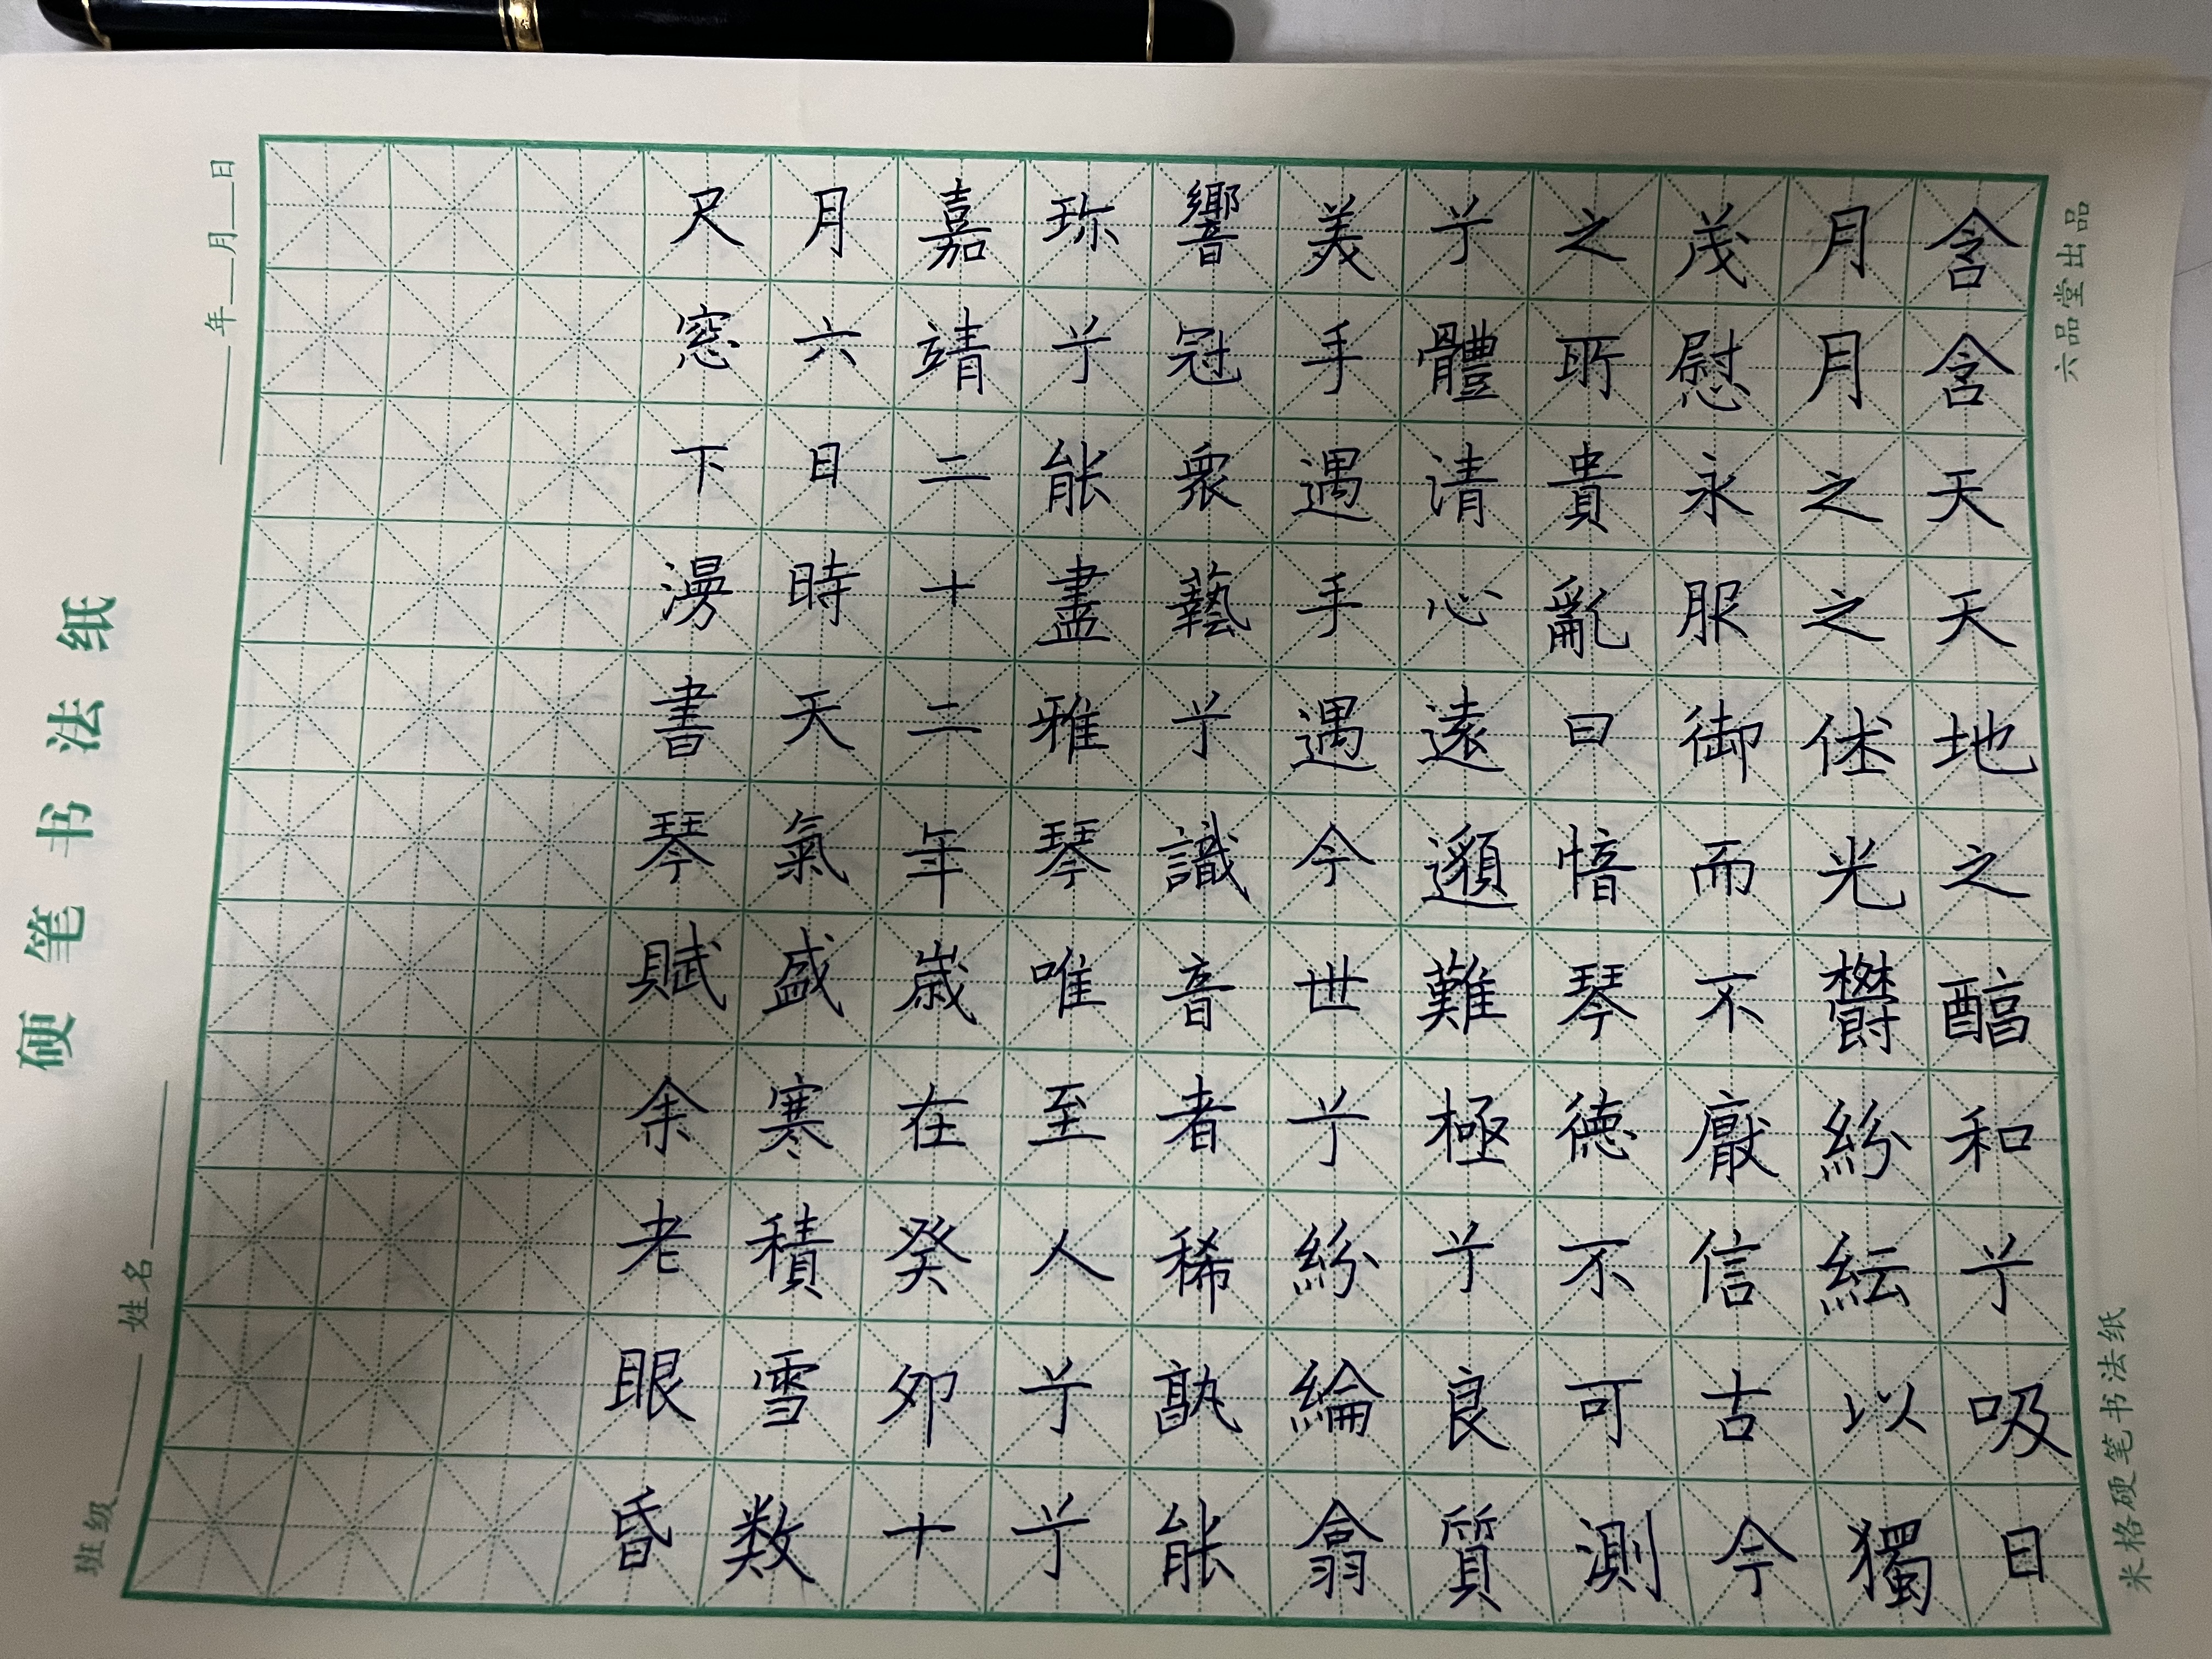 硬笔书法纸
班级 姓名
年 月 日
含含天天地之醇和兮吸日
月月之之休光鬱紛紜以獨
茂慰永服御而不厭信古今
之所貴亂曰愔琴德不可測
兮體清心遠邈難極兮良質
美手遇手遇今世兮紛綸翕
響冠衆藝兮識音者稀孰能
珎兮能盡雅琴唯至人兮兮
嘉靖二十二年歲在癸卯十
月六日時天氣盛寒積雪数
尺窓下漫書琴賦余老眼昏
六品堂出品
米格硬笔书法纸